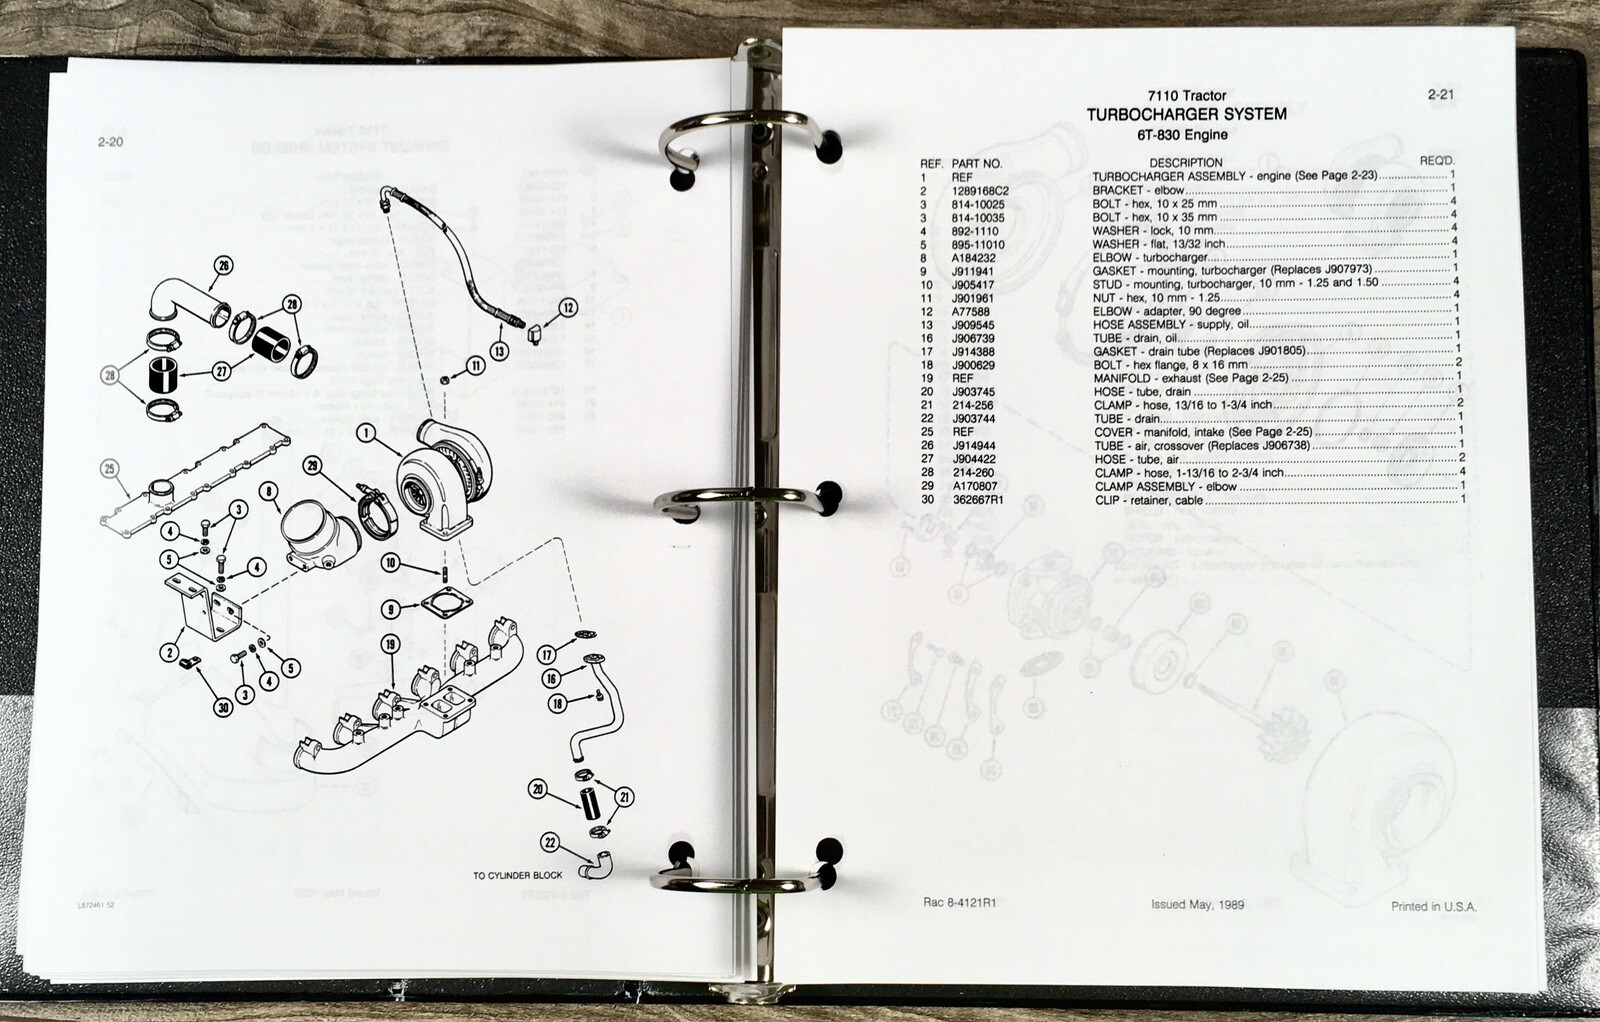 2-20
26
28
12
13
27
28
11
1
29
25
8
3
4
5
4
10
9
2
19
17
5
4
3
16
30
18
20
21
22
TO CYLINDER BLOCK
L872461.52
7110 Tractor
2-21
TURBOCHARGER SYSTEM
6T-830 Engine
REF. PART NO. DESCRIPTION REQ'D.
1 REF TURBOCHARGER ASSEMBLY - engine (See Page 2-23) 1
2 1289168C2 BRACKET - elbow 1
3 814-10025 BOLT - hex, 10 x 25 mm 4
3 814-10035 BOLT - hex, 10 x 35 mm 4
4 892-1110 WASHER - lock, 10 mm 4
5 895-11010 WASHER - flat, 13/32 inch 4
8 A184232 ELBOW - turbocharger 1
9 J911941 GASKET - mounting, turbocharger (Replaces J907973) 1
10 J905417 STUD - mounting, turbocharger, 10 mm - 1.25 and 1.50 4
11 J901961 NUT - hex, 10 mm - 1.25 4
12 A77588 ELBOW - adapter, 90 degree 1
13 J909545 HOSE ASSEMBLY - supply, oil 1
16 J906739 TUBE - drain, oil 1
17 J914388 GASKET - drain tube (Replaces J901805) 1
18 J900629 BOLT - hex flange, 8 x 16 mm 2
19 REF MANIFOLD - exhaust (See Page 2-25) 1
20 J903745 HOSE - tube, drain 1
21 214-256 CLAMP - hose, 13/16 to 1-3/4 inch 2
22 J903744 TUBE - drain 1
25 REF COVER - manifold, intake (See Page 2-25) 1
26 J914944 TUBE - air, crossover (Replaces J906738) 1
27 J904422 HOSE - tube, air 2
28 214-260 CLAMP - hose, 1-13/16 to 2-3/4 inch 4
29 A170807 CLAMP ASSEMBLY - elbow 1
30 362667R1 CLIP - retainer, cable 1
Rac 8-4121R1 Issued May, 1989 Printed in U.S.A.